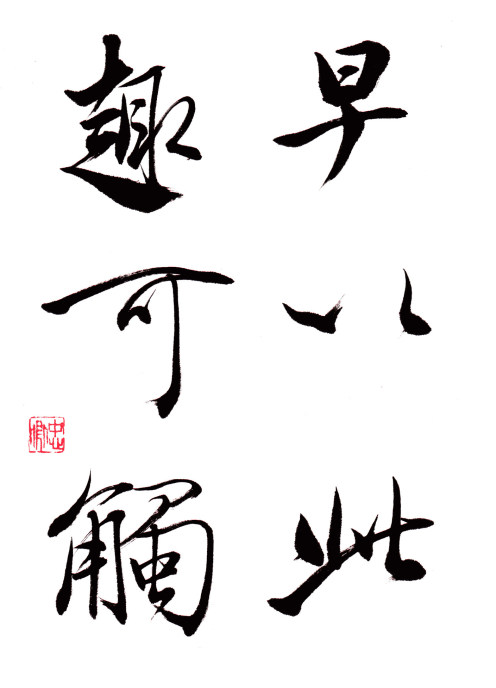 早以此
趣可觸